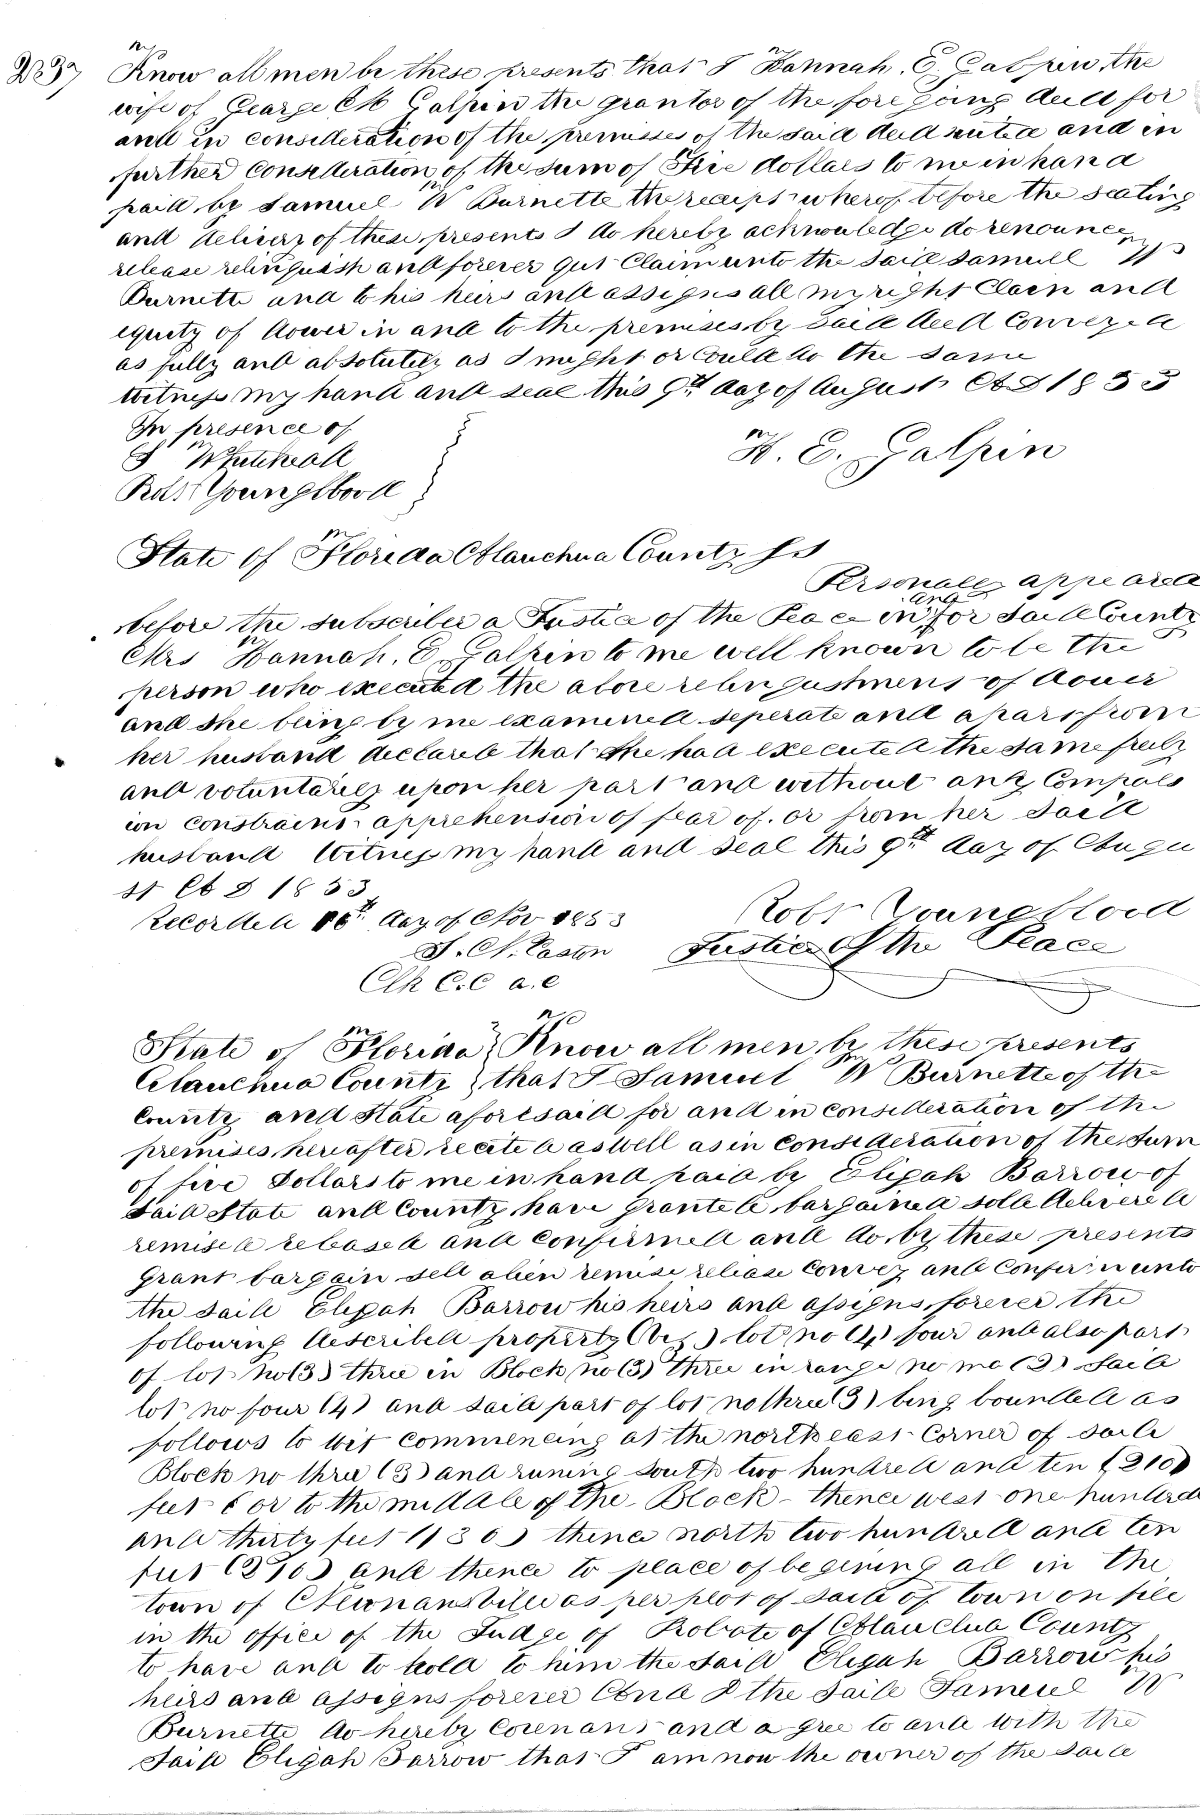 237 Know all men be these presents that I Hannah. E. Galpin, the
wife of George M Galpin the grantor of the foregoing deed for
and in consideration of the premisses of the said deed and in
further consideration of the sum of five dollars to me in hand
paid by Samuel W Burnette the receipt wherof before the sealing
and delivery of these presents I do hereby acknowledge do renounce
release relinquish and forever quit Claim unto the said Samuell W
Burnette and to his heirs and assigns all my right Claim and
equity of dower in and to the premises by said deed Conveyed
as fully and absolutely as I might or Could do the same
Witness my hand and seal this 9th day of August AD 1853
In presence of
J Whitehead
Robt Youngblood
H. E. Galpin
State of Florida Alauchua County ss
Personally appeared
before the subscriber a Justice of the Peace in and for said County
Mrs Hannah. E. Galpin to me well known to be the
person who executed the above relinquishment of dower
and she being by me examined seperate and apart from
her husband declared that she had executed the same freely
and voluntarily upon her part and without any Compuls
ion constraint apprehension of fear of. or from her said
husband Witness my hand and seal this 9th day of Augu
st AD 1853
Recorded 16th day of Nov 1853
Robt Youngblood
Justice of the Peace
Clk C.C a.c
State of Florida } Know all men by these presents
Alauchua County } that I Samuel W Burnette of the
County and State aforesaid for and in consideration of the
premises hereafter recited as well as in consideration of the sum
of five Dollars to me in hand paid by Eligah Barrow of
said State and County have granted bargained sold delivered
remised released and confirmed and do by these presents
Grant bargain sell alien remise release convey and confirm unto
the said Eligah Barrow his heirs and assigns forever the
following described property (viz) lot no (4) four and also part
of lot no (3) three in Block no (3) three in range no (2) said
lot no four (4) and said part of lot no three (3) being bounded as
follows to wit commencing at the north east Corner of said
Block no three (3) and runing south two hundred and ten (210)
feet & or to the middle of the Block - thence west one hundred
and thirty feet (130) thence north two hundred and ten
feet (210) and thence to place of begining all in the
town of Newnansville as per plot of said of town on file
in the office of the Judge of Robate of Alauchua County
to have and to hold to him the said Eligah Barrow his
heirs and assigns forever And I the said Samuel W
Burnette do hereby Covenant and agree to and with the
said Eligah Barrow that I am now the owner of the said